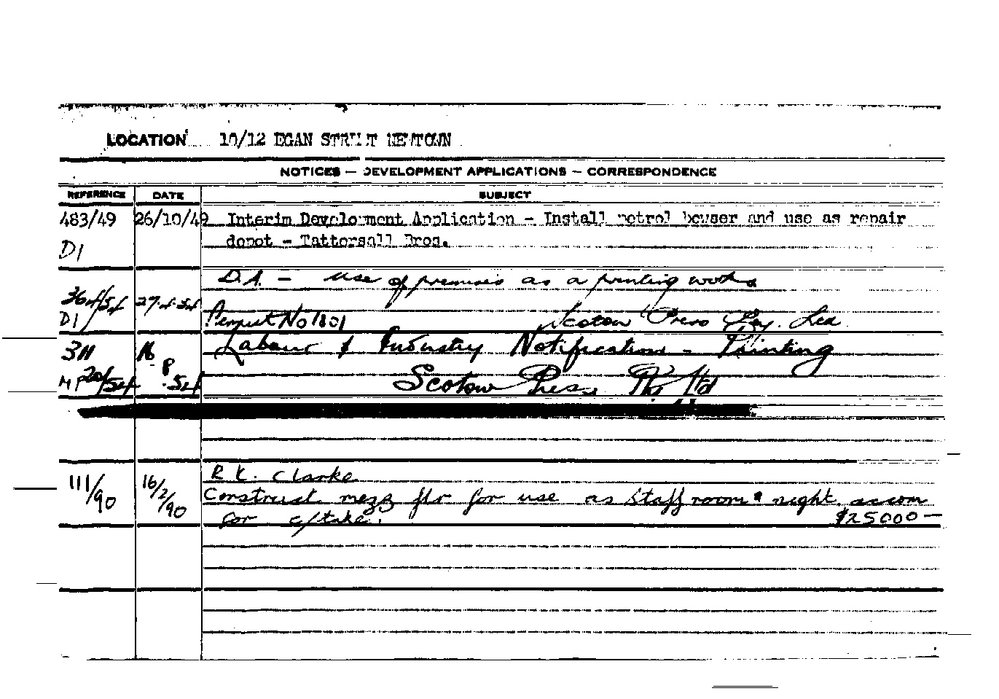 LOCATION 10/12 EGAN STREET NEWTOWN
NOTICES — DEVELOPMENT APPLICATIONS — CORRESPONDENCE
REFERENCE DATE SUBJECT
483/49 26/10/49 Interim Development Application - Install petrol bowser and use as repair
D1 depot - Tattersall Bros.
D.A. - use of premises as a printing works
27.4.54
D1 Permit No 1801 Scotow Press Pty. Ltd.
311 16 Labour & Industry Notification - Printing
8 .54 Scotow Press Pty Ltd
111/90 16/2/90 R K. Clarke
Construct mezz flr for use as staff room & night accom
for c/taker. $25000 —